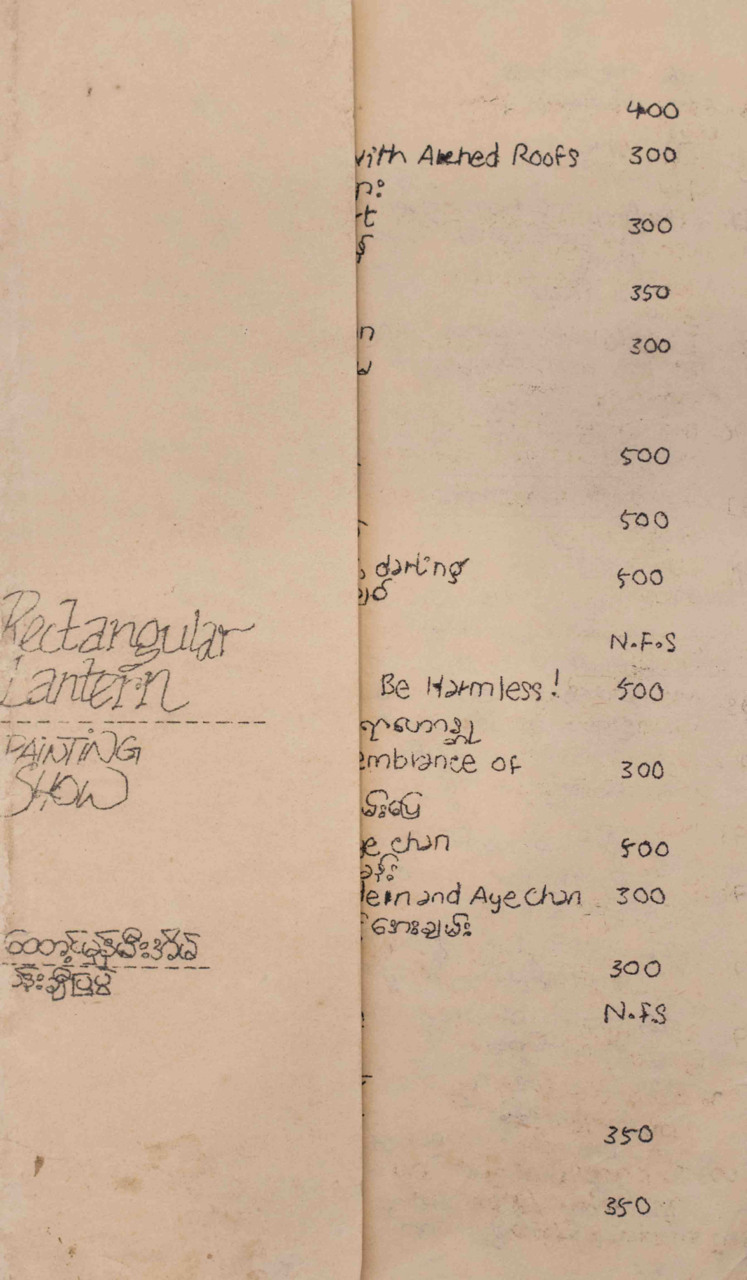 Rectangular
Lantern
PAINTING
SHOW
ထောင့်မှန်မီးအိမ်
ပန်းချီပြပွဲ
400
with Arched Roofs 300
300
350
300
500
500
darling
500
N.F.S
Be Harmless! 500
embrance of
300
e chan
500
lein and Aye Chan 300
အေးချမ်း
300
N.F.S
350
350